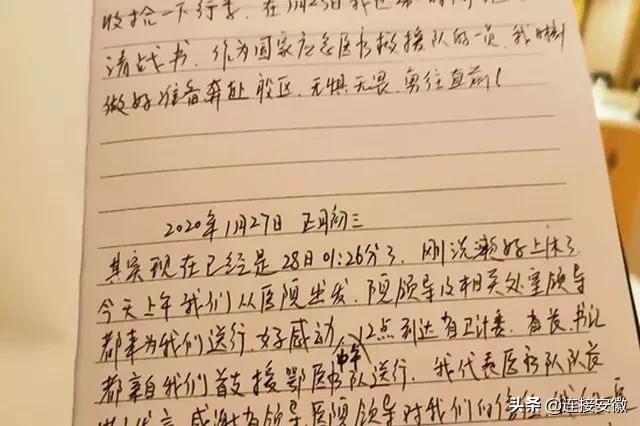 收拾一下行李,在1月23日我
请战书,作为国家应急医疗救援队的一员,我时刻
做好准备奔赴疫区,无惧无畏,勇往直前!
2020年1月27日 正月初三
其实现在已经是28日01:26分了,刚洗漱好上床了
今天上午我们从医院出发,院领导及相关处室领导
都来为我们送行,好感动,中午12点到达省卫计委,省长、书记
都亲自为我们首支援鄂医疗队送行,我代表医疗队队长
发言,感谢省领导、医院领导对我们的信任
头条@连接安徽